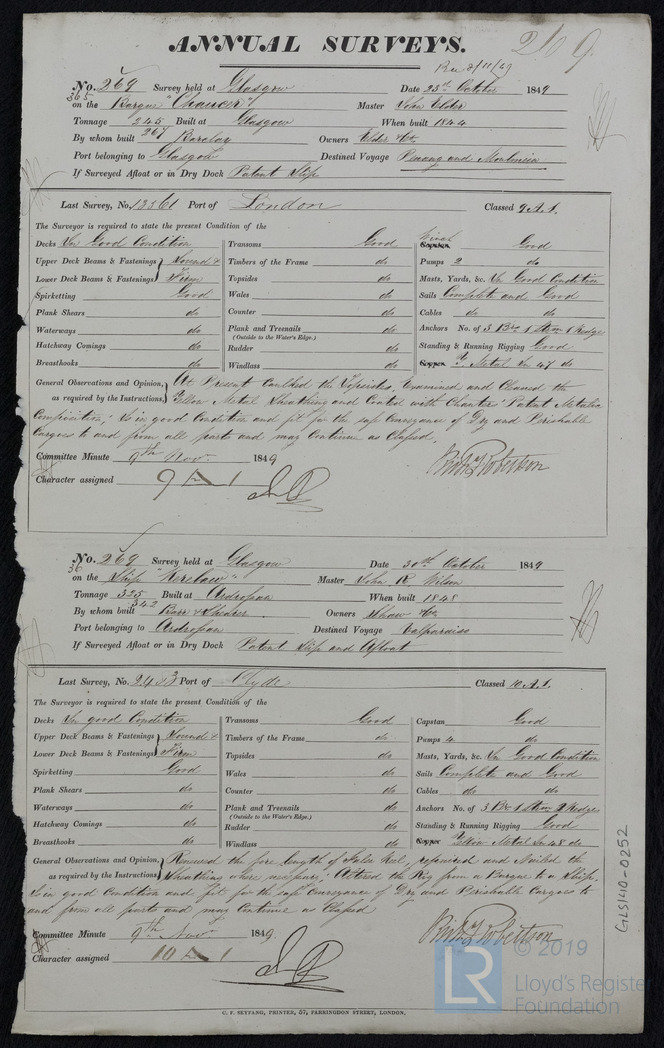 269
ANNUAL SURVEYS.
Rec 2/11/49
No. 269 Survey held at Glasgow Date 23rd October 1849
365 on the Barque "Chaucer" Master John Elder
Tonnage 245 267 Built at Glasgow When built 1844
By whom built Barclay Owners Elder &Co
Port belonging to Glasgow Destined Voyage Penang and
If Surveyed Afloat or in Dry Dock Patent Slip
Last Survey, No. 13361 Port of London Classed 9.A.1.
The Surveyor is required to state the present Condition of the
Decks In Good Condition Transoms Good Winch Good
Upper Deck Beams & Fastenings Sound & Timbers of the Frame do Pumps 2 do
Lower Deck Beams & Fastenings Firm Topsides do Masts, Yards, &c. In Good Condition
Spirketting Good Wales do Sails Complete and Good
Plank Shears do Counter do Cables do do
Waterways do Plank and Treenails do Anchors No. of 3 Brs 1 Strm 1 Kedge
(Outside to the Water's Edge.)
Hatchway Comings do Rudder do Standing & Running Rigging Good
Breasthooks do Windlass do Copper Y. Metal in 47 do
General Observations and Opinion, At Present Caulked the Topsides, Examined and Cleaned the
as required by the Instructions, Yellow Metal Sheathing and Coated with Patent Metalic
Composition; Is in good Condition and fit for the safe Conveyance of Dry and Perishable
Cargoes to and from all parts and may Continue as Classed.
Committee Minute 9th Nov. 1849
Character assigned 9 A 1
Robertson
No. 269 Survey held at Glasgow Date 30th October 1849
36 on the Ship "Kerelaw" Master John R. Wilson
Tonnage 325 342 Built at Ardrossan When built 1848
By whom built Barr & Shearer Owners Shaw &Co
Port belonging to Ardrossan Destined Voyage Valparaiso
If Surveyed Afloat or in Dry Dock Patent Slip and Afloat
Last Survey, No. 2483 Port of Clyde Classed 10.A.1.
The Surveyor is required to state the present Condition of the
Decks In good Condition Transoms Good Capstan Good
Upper Deck Beams & Fastenings Sound & Timbers of the Frame do Pumps 4 do
Lower Deck Beams & Fastenings Firm Topsides do Masts, Yards, &c. In Good Condition
Spirketting Good Wales do Sails Complete and Good
Plank Shears do Counter do Cables do do
Waterways do Plank and Treenails do Anchors No. of 3 Br 1 Strm 2 Kedge
(Outside to the Water's Edge.)
Hatchway Comings do Rudder do Standing & Running Rigging Good
Breasthooks do Windlass do Copper Yellow Metal In 48 do
General Observations and Opinion, Renewed the fore length of False Keel, repaired and Nailed the
as required by the Instructions, Sheathing where necessary; Altered the Rig from a Barque to a Ship.
Is in good Condition and fit for the safe Conveyance of Dry and Perishable Cargoes to
and from all parts and may Continue as Classed
Committee Minute 9th Nov 1849.
Character assigned 10 A 1
Robertson
GLS140-0252
© 2019
LR Lloyd's Register
Foundation
C. F. SEYFANG, PRINTER, 57, FARRINGDON STREET, LONDON.